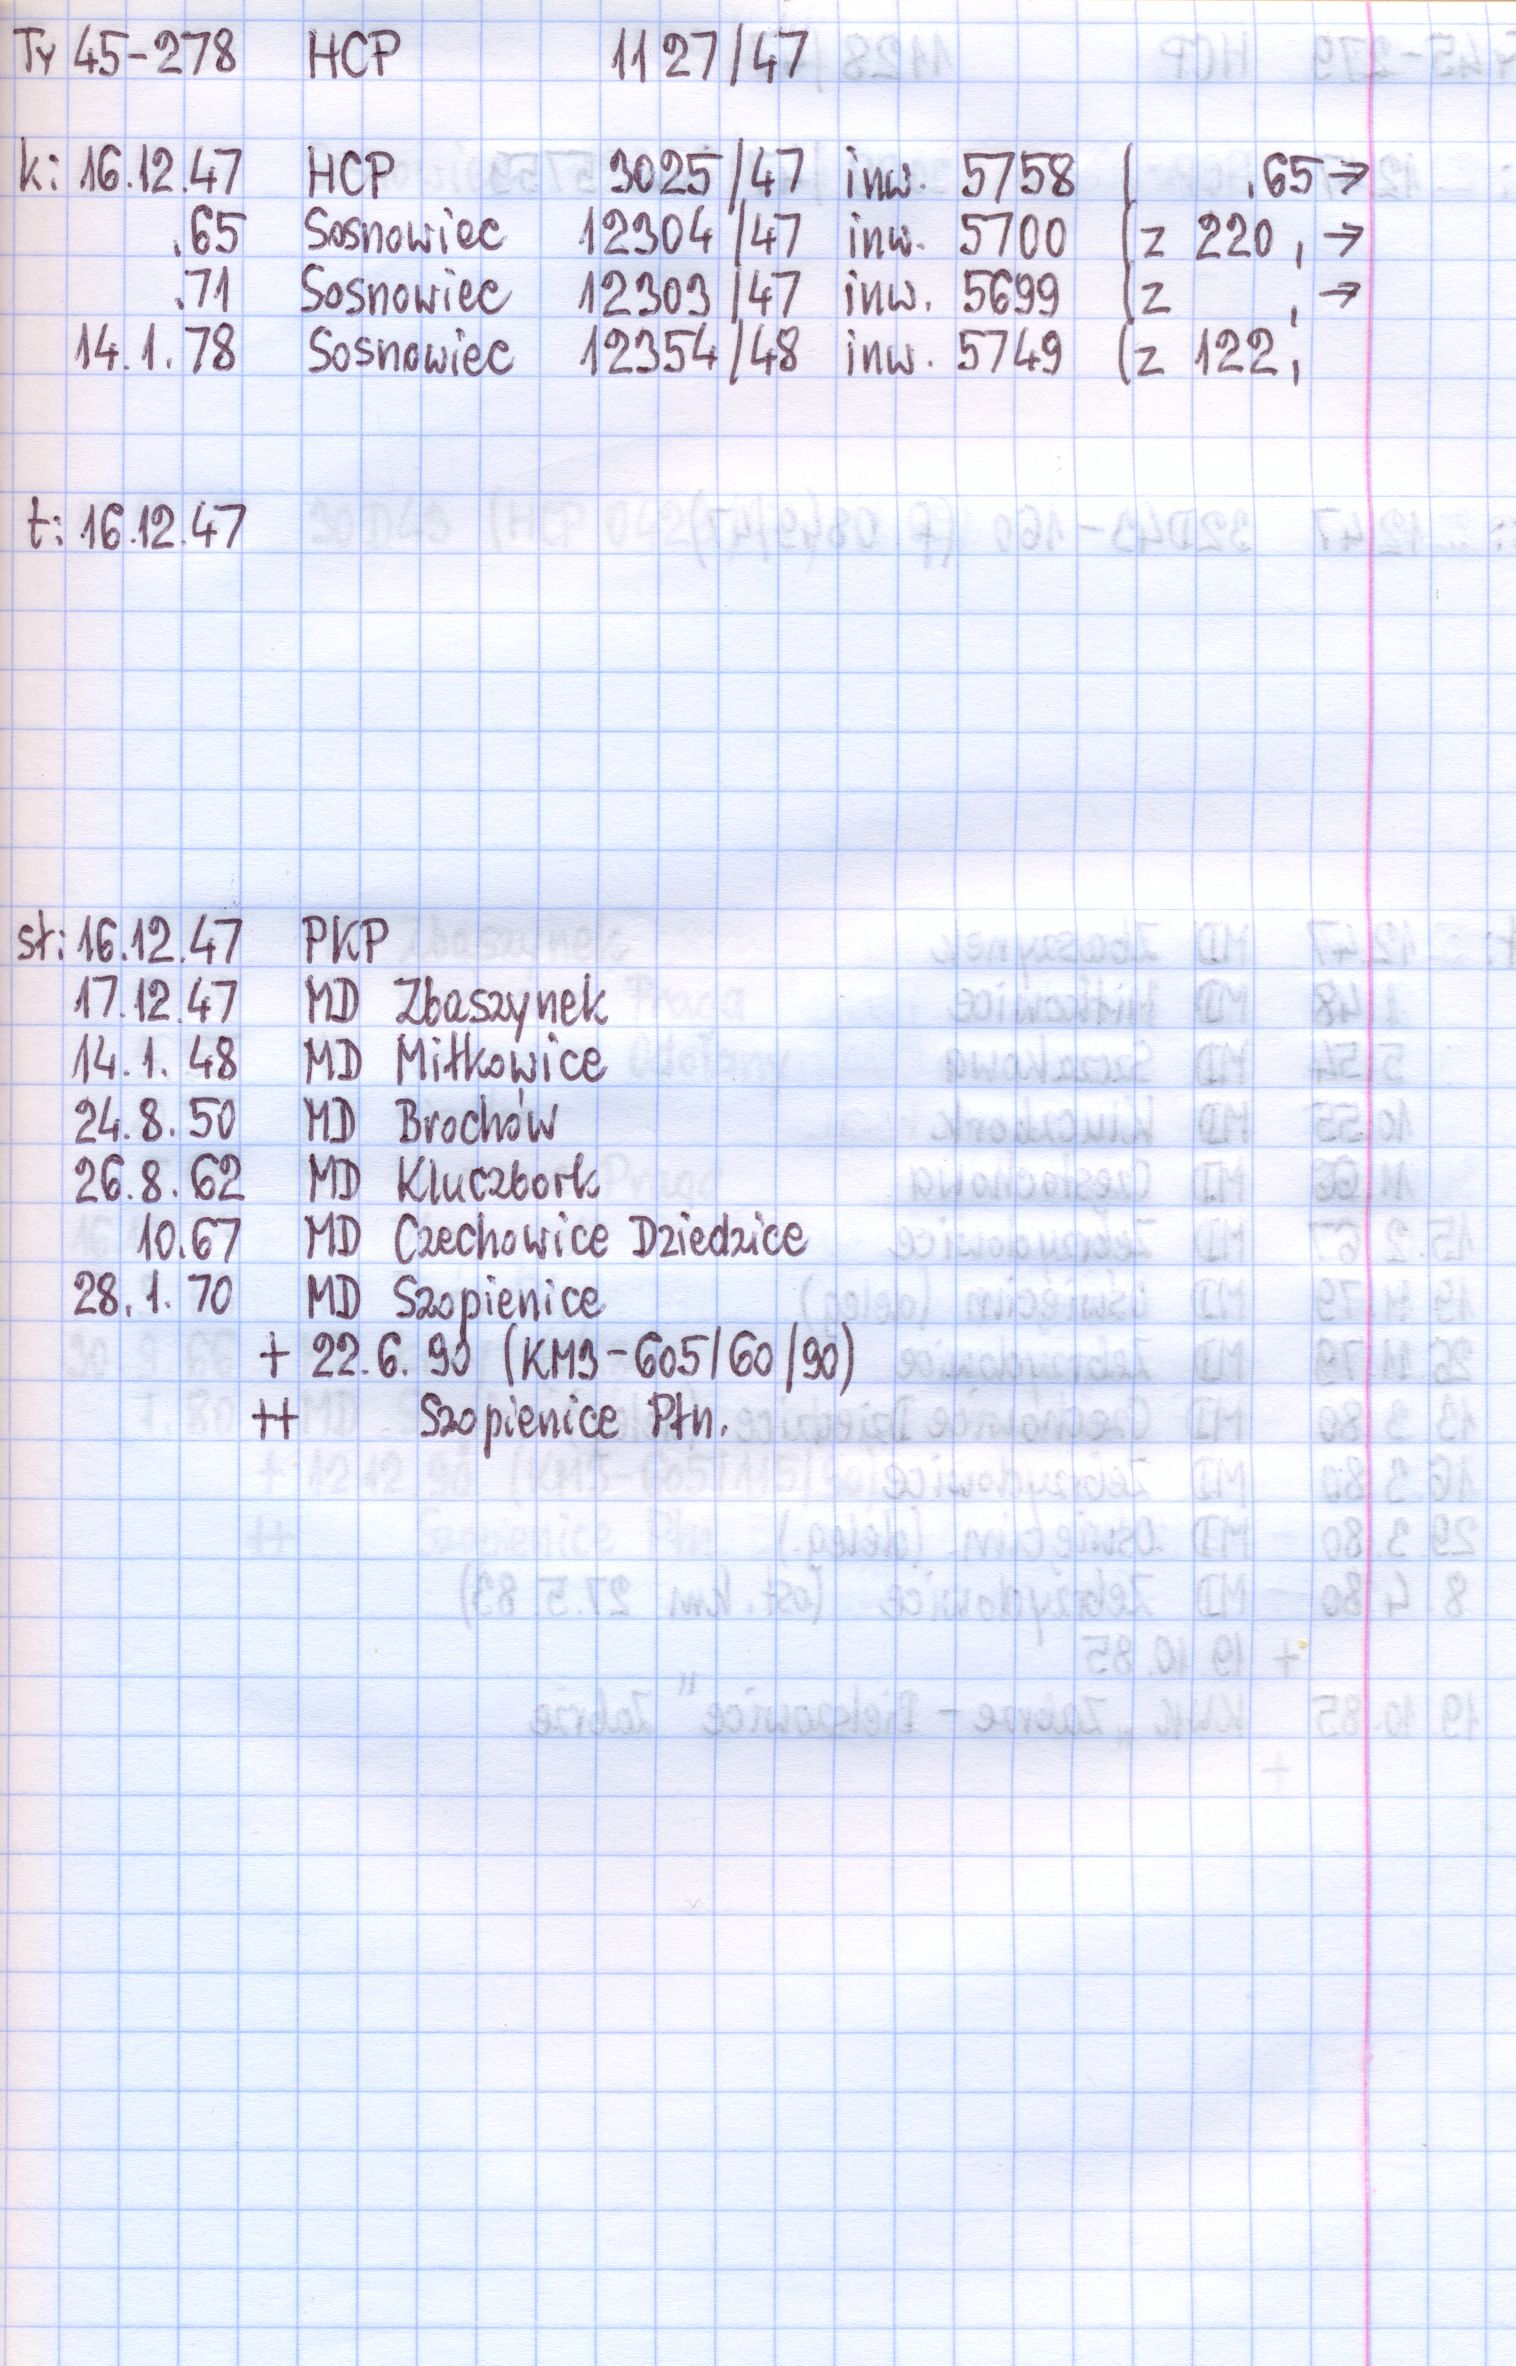 Ty 45-278 HCP 1127/47
k: 16.12.47 HCP 3025/47 inw. 5758 ( .65→
.65 Sosnowiec 12304/47 inw. 5700 (z 220, →
.71 Sosnowiec 12303/47 inw. 5699 (z , →
14.1.78 Sosnowiec 12354/48 inw. 5749 (z 122,
t: 16.12.47
st: 16.12.47 PKP
17.12.47 MD Zbaszynek
14.1.48 MD Miłkowice
24.8.50 MD Brochów
26.8.62 MD Kluczbork
10.67 MD Czechowice Dziedzice
28.1.70 MD Szopienice
+ 22.6.90 (KM3-605/60/90)
++ Szopienice Płn.